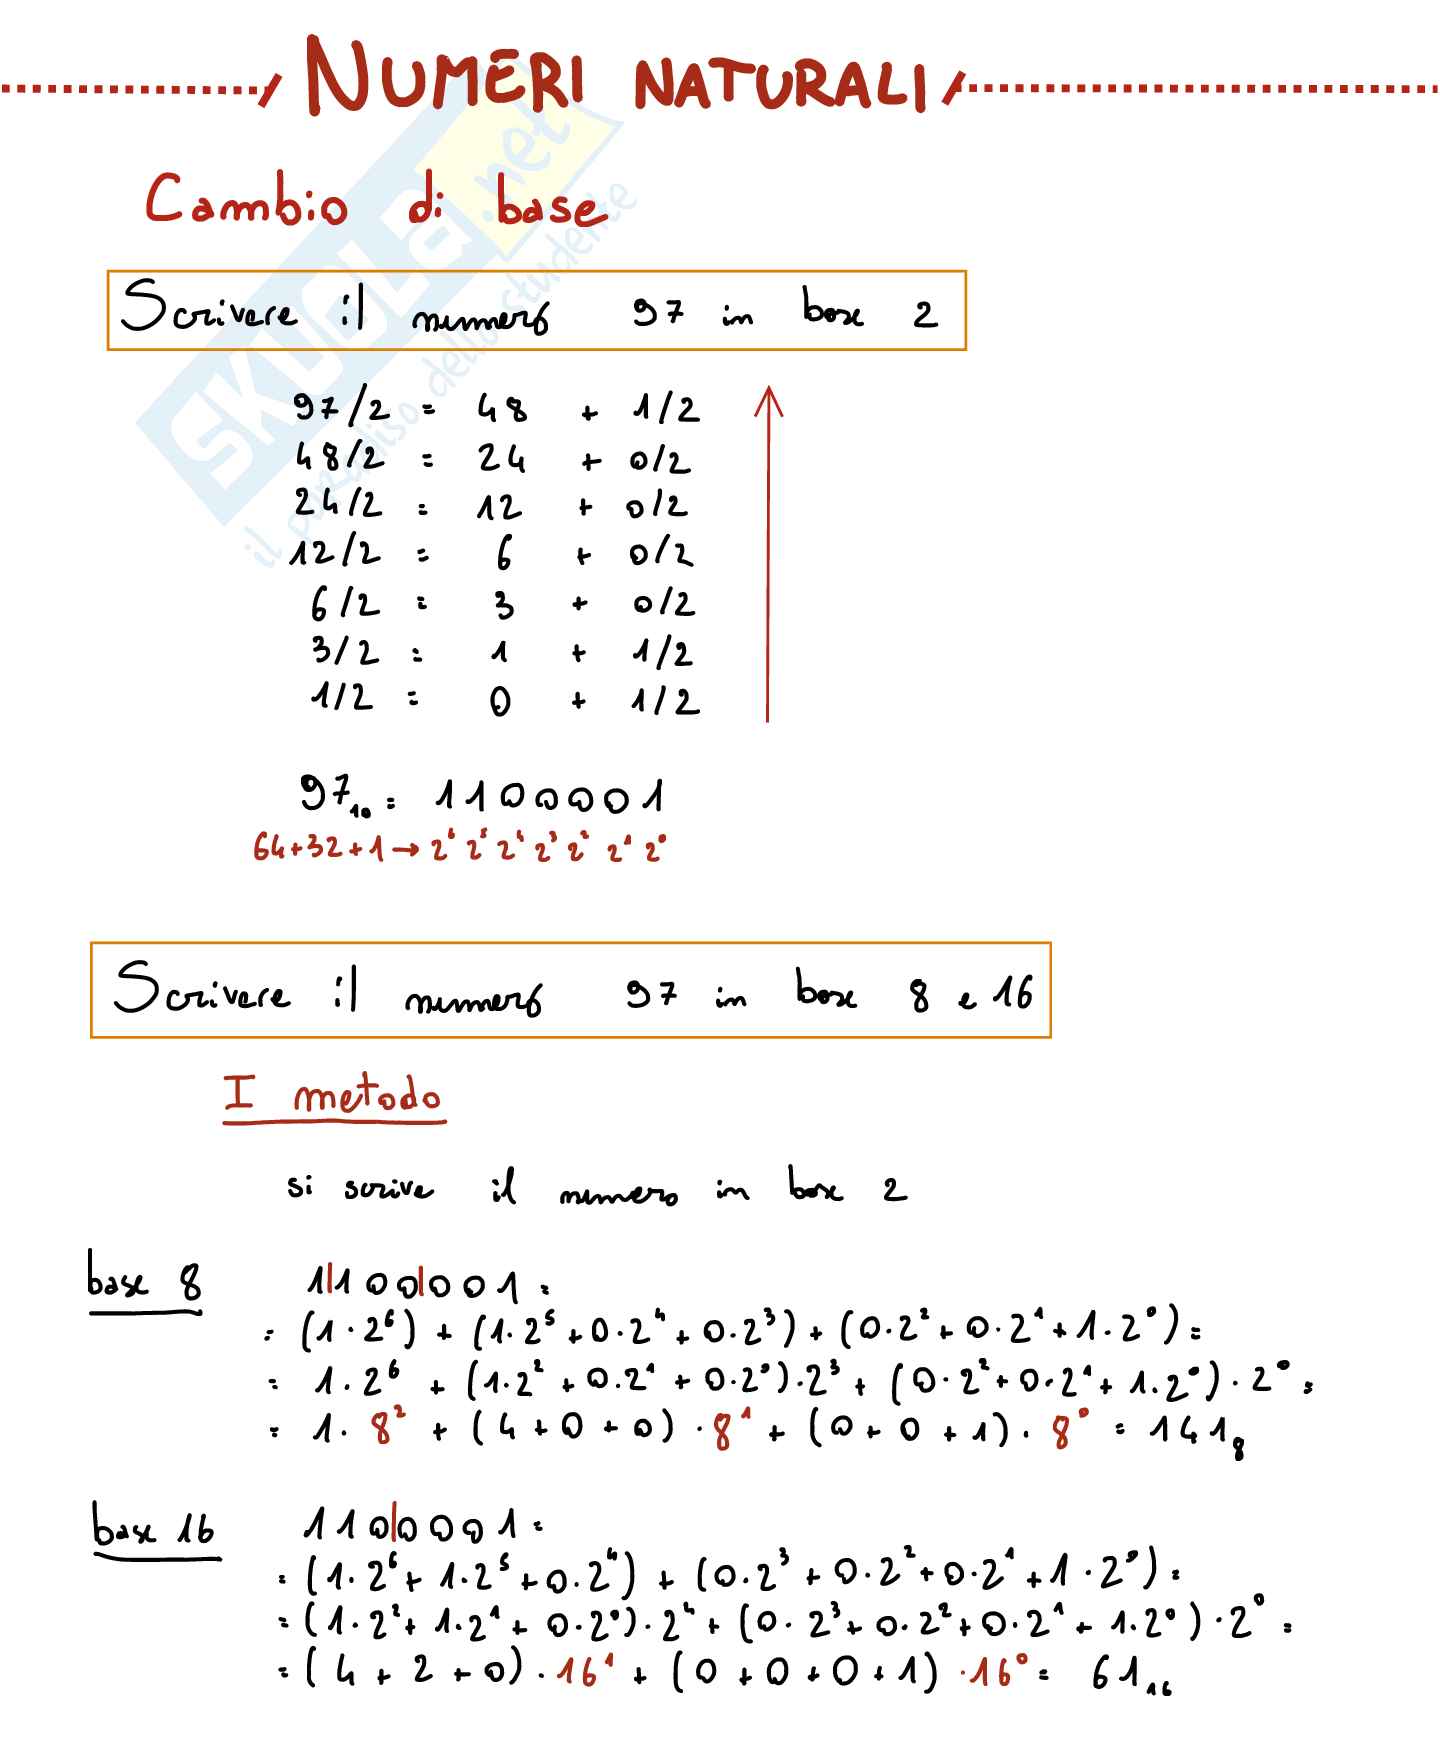 NUMERI NATURALI
SKUOLA.net
il paradiso dello studente
Cambio di base
Scrivere il numero 97 in base 2
97/2 = 48 + 1/2
48/2 = 24 + 0/2
24/2 = 12 + 0/2
12/2 = 6 + 0/2
6/2 = 3 + 0/2
3/2 = 1 + 1/2
1/2 = 0 + 1/2
97₁₀ = 1100001
64+32+1 → 2⁶ 2⁵ 2⁴ 2³ 2² 2¹ 2⁰
Scrivere il numero 97 in base 8 e 16
I metodo
si scrive il numero in base 2
base 8 1|100|001 =
= (1·2⁶) + (1·2⁵+0·2⁴+0·2³) + (0·2²+0·2¹+1·2⁰) =
= 1·2⁶ + (1·2² + 0·2¹ + 0·2⁰)·2³ + (0·2²+0·2¹+1·2⁰)·2⁰ =
= 1·8² + (4+0+0)·8¹ + (0+0+1)·8⁰ = 141₈
base 16 110|0001 =
= (1·2⁶+1·2⁵+0·2⁴) + (0·2³+0·2²+0·2¹+1·2⁰) =
= (1·2²+1·2¹+0·2⁰)·2⁴ + (0·2³+0·2²+0·2¹+1·2⁰)·2⁰ =
= (4+2+0)·16¹ + (0+0+0+1)·16⁰ = 61₁₆